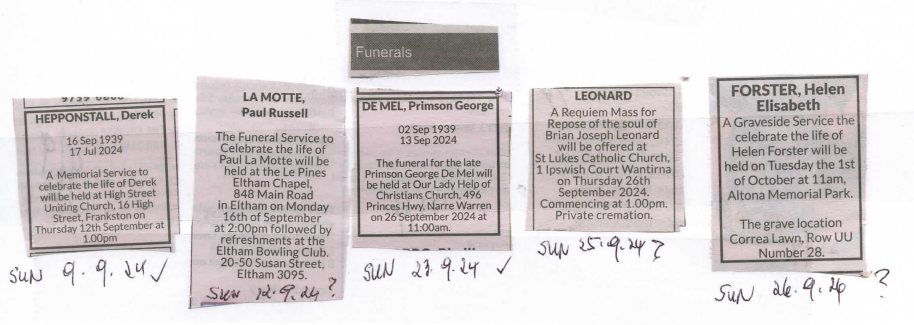 Funerals
HEPPONSTALL, Derek
16 Sep 1939
17 Jul 2024
A Memorial Service to
celebrate the life of Derek
will be held at High Street
Uniting Church, 16 High
Street, Frankston on
Thursday 12th September at
1.00pm
SUN 9.9.24 ✓
LA MOTTE,
Paul Russell
The Funeral Service to
Celebrate the life of
Paul La Motte will be
held at the Le Pines
Eltham Chapel,
848 Main Road
in Eltham on Monday
16th of September
at 2:00pm followed by
refreshments at the
Eltham Bowling Club.
20-50 Susan Street,
Eltham 3095.
SUN 12.9.24 ?
DE MEL, Primson George
02 Sep 1939
13 Sep 2024
The funeral for the late
Primson George De Mel will
be held at Our Lady Help of
Christians Church, 496
Princes Hwy, Narre Warren
on 26 September 2024 at
11:00am.
SUN 23.9.24 ✓
LEONARD
A Requiem Mass for
Repose of the soul of
Brian Joseph Leonard
will be offered at
St Lukes Catholic Church,
1 Ipswich Court Wantirna
on Thursday 26th
September 2024.
Commencing at 1.00pm.
Private cremation.
SUN 25.9.24 ?
FORSTER, Helen
Elisabeth
A Graveside Service the
celebrate the life of
Helen Forster will be
held on Tuesday the 1st
of October at 11am,
Altona Memorial Park.
The grave location
Correa Lawn, Row UU
Number 28.
SUN 26.9.24 ?